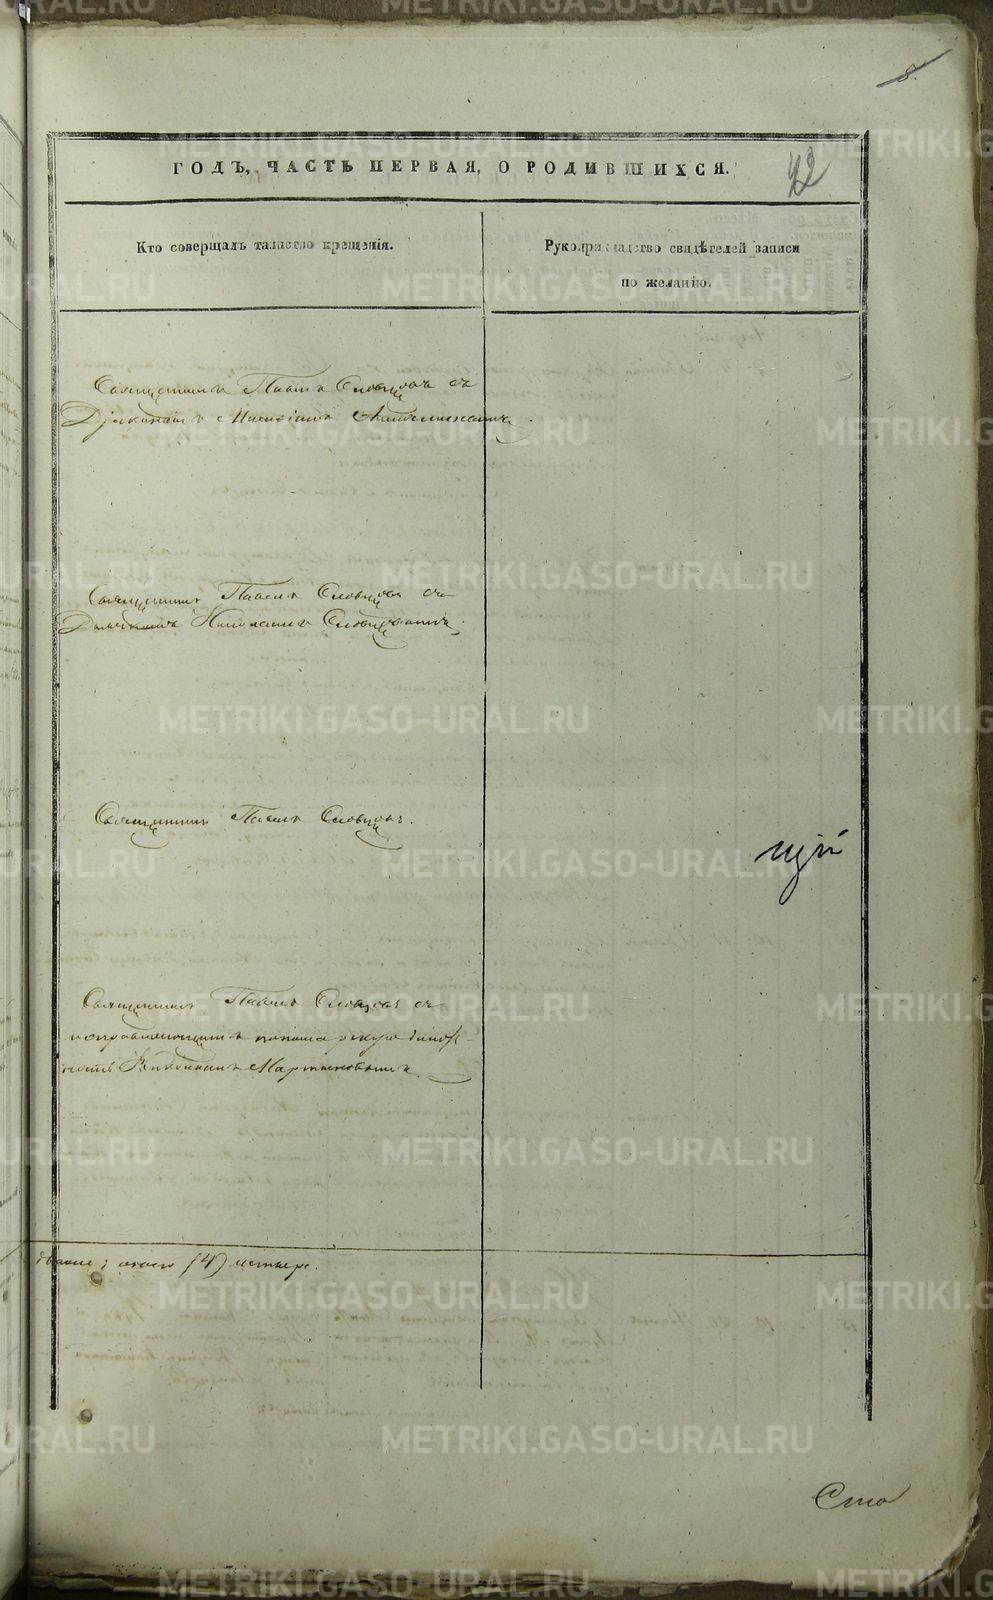 8.
ГОДЪ, ЧАСТЬ ПЕРВАЯ, О РОДИВШИХСЯ.
42
Кто совершалъ таинство крещенія.
Рукоприкладство свидѣтелей записи
по желанію.
Священникъ Павелъ Словцовъ съ
Діакономъ
Священникъ Павелъ Словцовъ съ
Дьячкомъ Николаемъ Словцовымъ.
Священникъ Павелъ Словцовъ.
щій
Священникъ Павелъ Словцовъ съ
исправляющимъ должность
Мартыновымъ.
(4) четыре.
Сто
METRIKI.GASO-URAL.RU